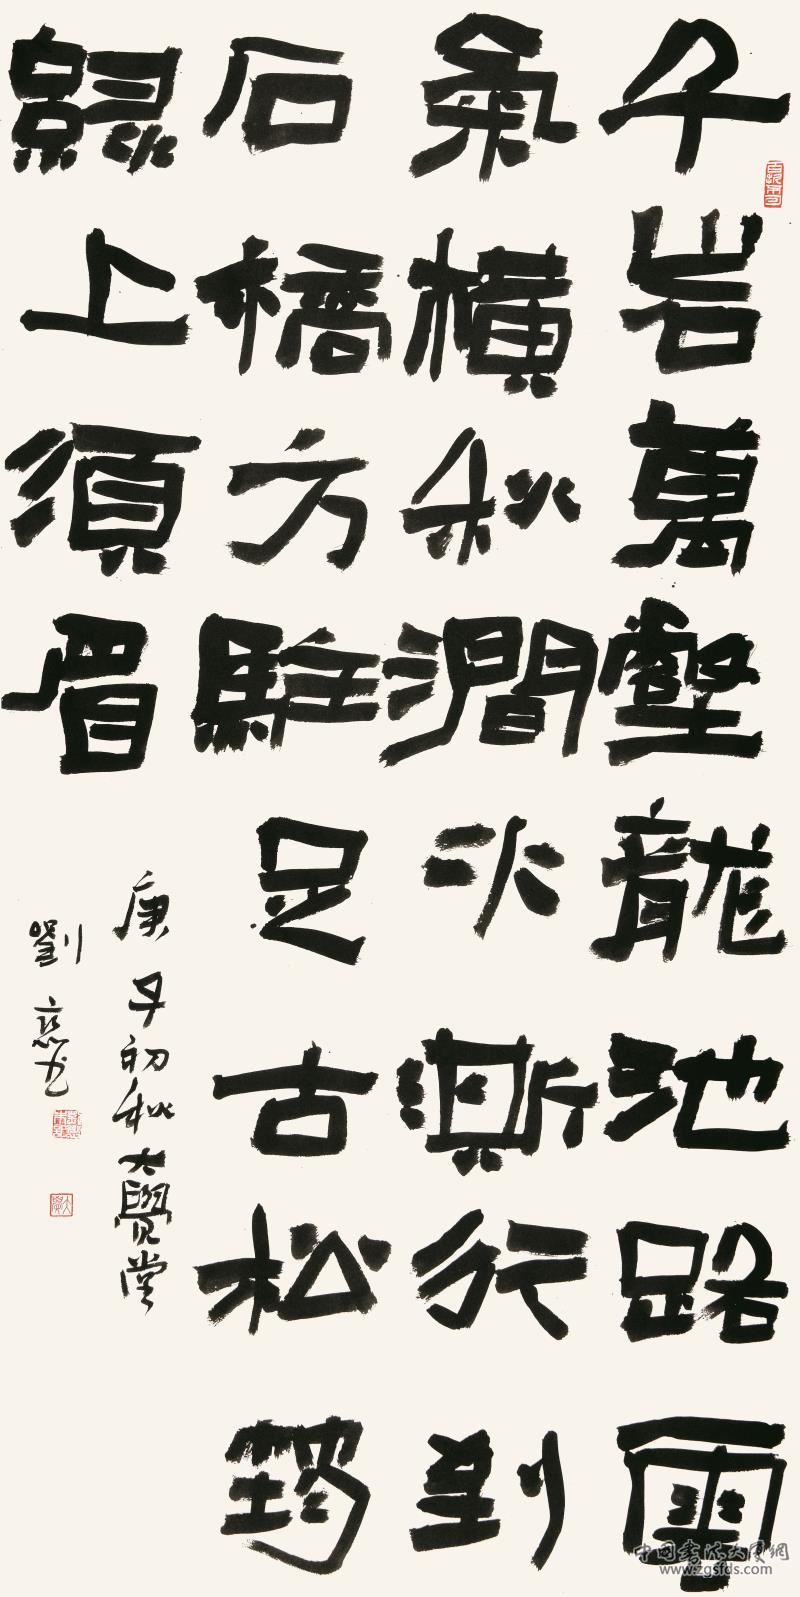 千岩萬壑龍池路雨
氣橫秋澗水漸行到
石橋方駐足古松筠
綠上須眉
庚子初秋大覺堂
劉
中國書法大廈網
www.zgsfds.com